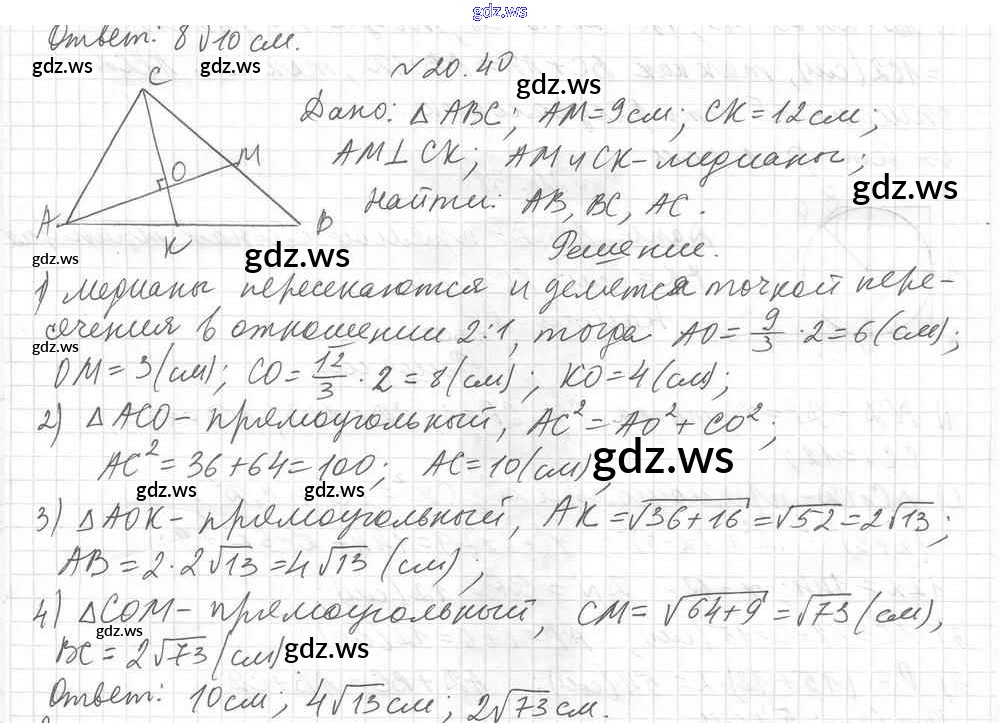 gdz.ws
Ответ: 8√10 см.
gdz.ws gdz.ws
№20.40
gdz.ws
C
Дано: △ABC; AM=9см; CK=12см;
M
O
AM⊥CK; AM и CK-медианы;
gdz.ws
Найти: AB, BC, AC.
A
B
K
Решение.
gdz.ws gdz.ws
1) медианы пересекаются и делятся точкой пере-
сечения в отношении 2:1, тогда AO = 9/3 · 2 = 6 (см);
gdz.ws
OM = 3 (см); CO = 12/3 · 2 = 8 (см); KO = 4 (см);
2) △ACO - прямоугольный, AC² = AO² + CO²;
AC² = 36+64=100; AC = 10 (см);
gdz.ws
gdz.ws gdz.ws
3) △AOK - прямоугольный, AK = √36+16 = √52 = 2√13;
AB = 2·2√13 = 4√13 (см);
4) △COM - прямоугольный, CM = √64+9 = √73 (см),
gdz.ws
BC = 2√73 (см)
gdz.ws
Ответ: 10см; 4√13см; 2√73см.
gdz.ws